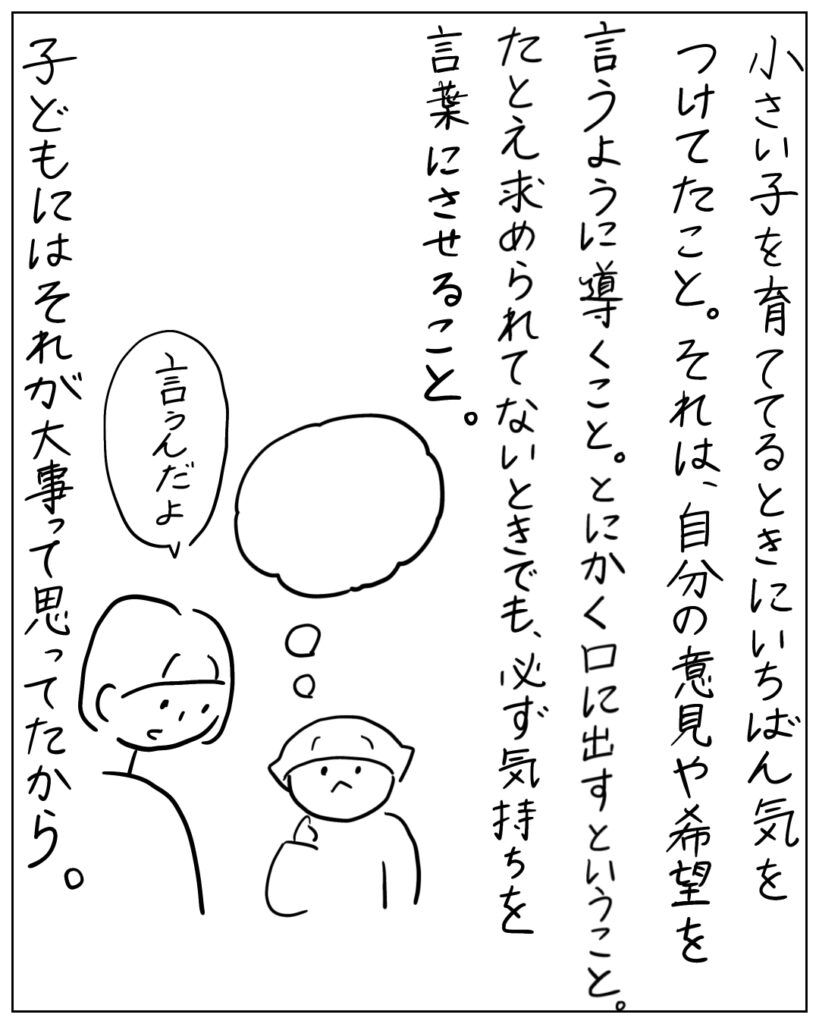 小さい子を育ててるときにいちばん気を
つけてたこと。それは、自分の意見や希望を
言うように導くこと。とにかく口に出すということ。
たとえ求められてないときでも、必ず気持ちを
言葉にさせること。
言うんだよ
子どもにはそれが大事って思ってたから。